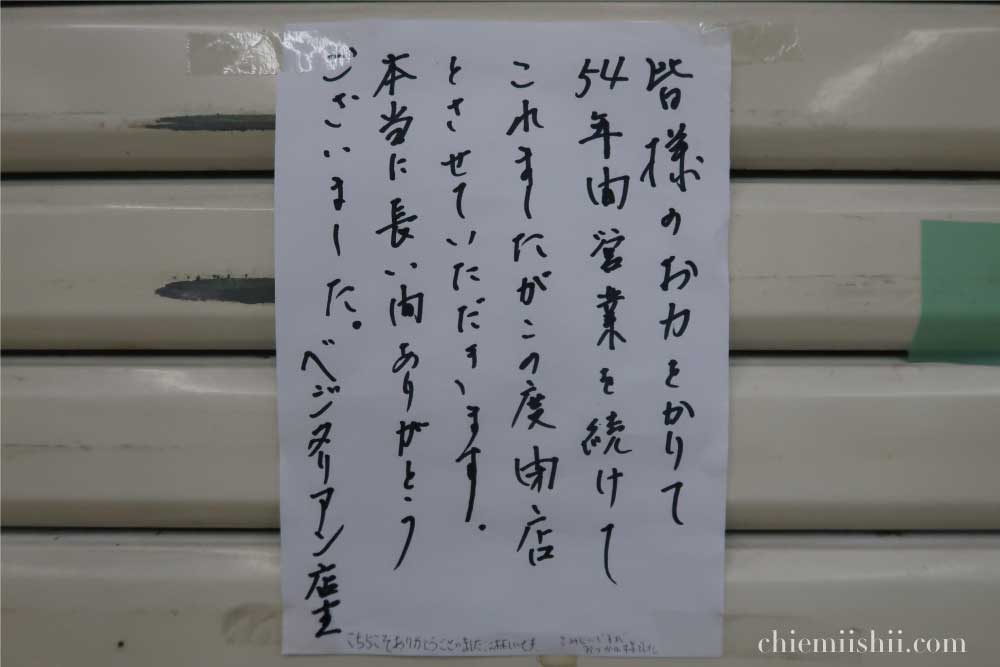 皆様のお力をかりて
54年間営業を続けて
これましたがこの度閉店
とさせていただきます。
本当に長い間ありがとう
ございました。
ベジタリアン店主
こちらこそありがとうございました、
さみしいですね
おつかれさまでした
chiemiishii.com